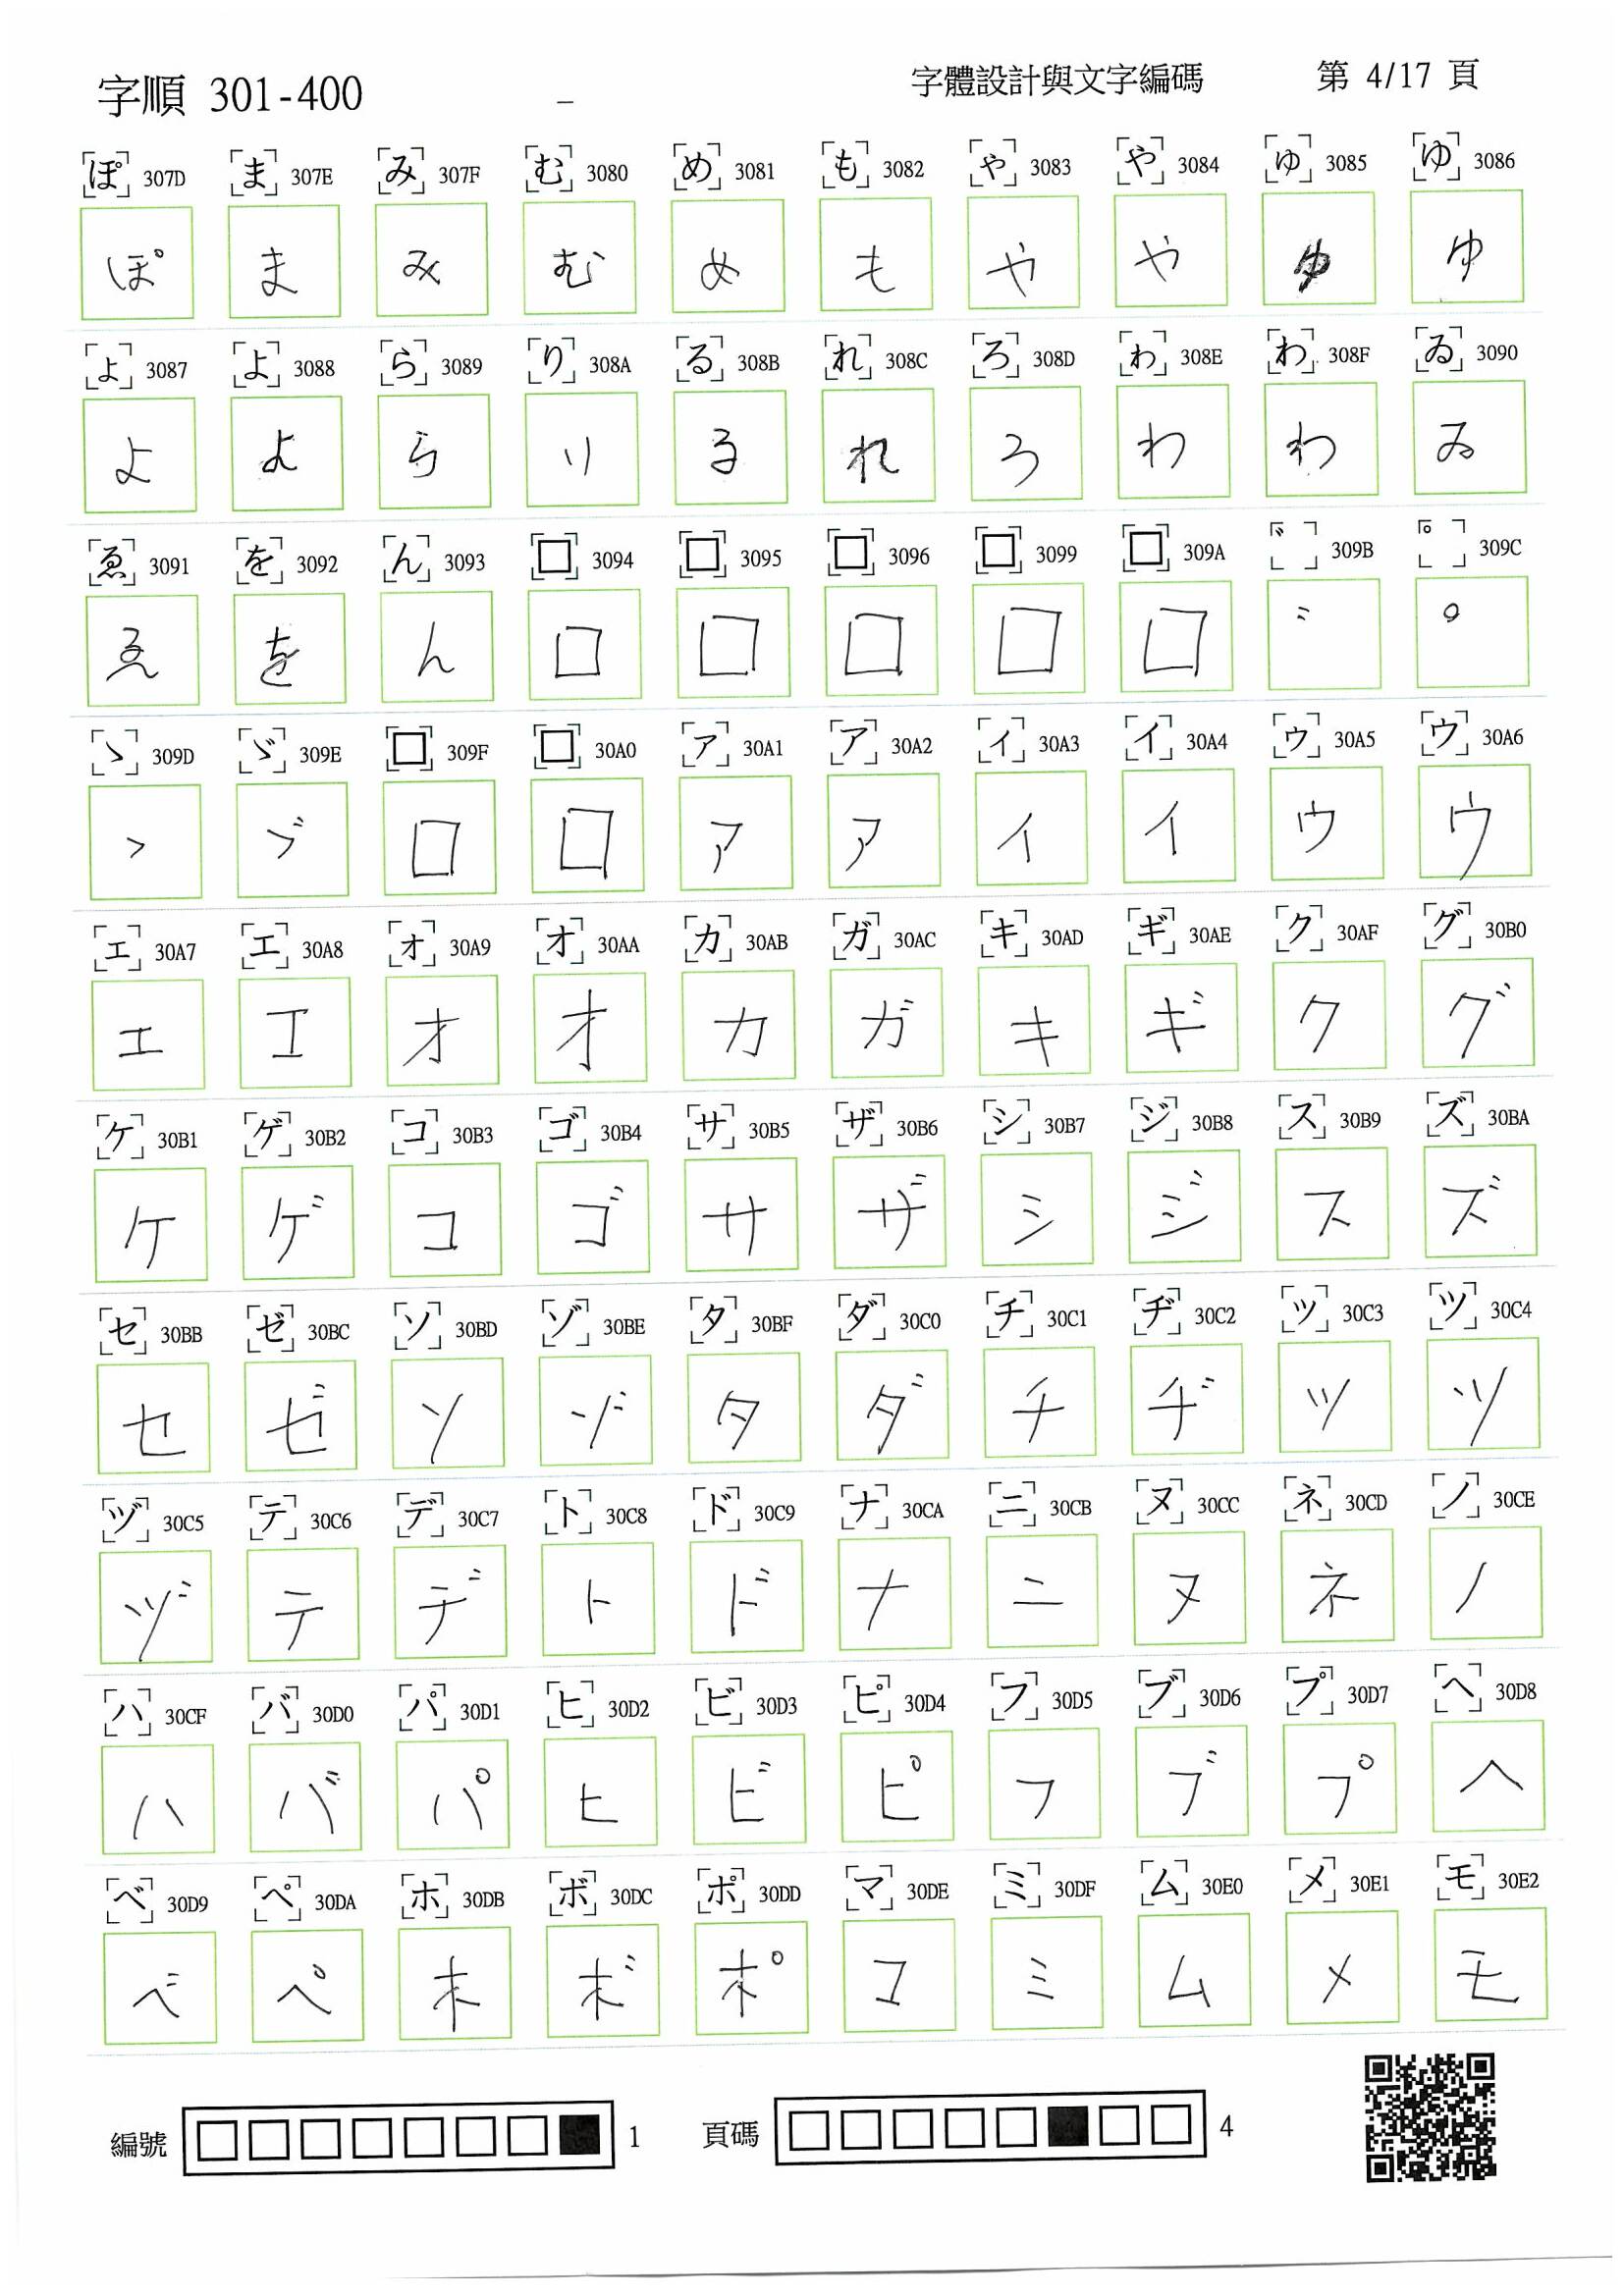 字順 301-400 – 字體設計與文字編碼 第 4/17 頁
ぽ 307D ま 307E み 307F む 3080 め 3081 も 3082 ゃ 3083 や 3084 ゅ 3085 ゆ 3086
ぽ ま み む め も ゃ や ゅ ゆ
ょ 3087 よ 3088 ら 3089 り 308A る 308B れ 308C ろ 308D ゎ 308E わ 308F ゐ 3090
ょ よ ら り る れ ろ ゎ わ ゐ
ゑ 3091 を 3092 ん 3093 □ 3094 □ 3095 □ 3096 □ 3099 □ 309A ゛ 309B ゜ 309C
ゑ を ん □ □ □ □ □ ゛ ゜
ゝ 309D ゞ 309E □ 309F □ 30A0 ァ 30A1 ア 30A2 ィ 30A3 イ 30A4 ゥ 30A5 ウ 30A6
ゝ ゞ □ □ ァ ア ィ イ ゥ ウ
ェ 30A7 エ 30A8 ォ 30A9 オ 30AA カ 30AB ガ 30AC キ 30AD ギ 30AE ク 30AF グ 30B0
ェ エ ォ オ カ ガ キ ギ ク グ
ケ 30B1 ゲ 30B2 コ 30B3 ゴ 30B4 サ 30B5 ザ 30B6 シ 30B7 ジ 30B8 ス 30B9 ズ 30BA
ケ ゲ コ ゴ サ ザ シ ジ ス ズ
セ 30BB ゼ 30BC ソ 30BD ゾ 30BE タ 30BF ダ 30C0 チ 30C1 ヂ 30C2 ッ 30C3 ツ 30C4
セ ゼ ソ ゾ タ ダ チ ヂ ッ ツ
ヅ 30C5 テ 30C6 デ 30C7 ト 30C8 ド 30C9 ナ 30CA ニ 30CB ヌ 30CC ネ 30CD ノ 30CE
ヅ テ デ ト ド ナ ニ ヌ ネ ノ
ハ 30CF バ 30D0 パ 30D1 ヒ 30D2 ビ 30D3 ピ 30D4 フ 30D5 ブ 30D6 プ 30D7 ヘ 30D8
ハ バ パ ヒ ビ ピ フ ブ プ ヘ
ベ 30D9 ペ 30DA ホ 30DB ボ 30DC ポ 30DD マ 30DE ミ 30DF ム 30E0 メ 30E1 モ 30E2
ベ ペ ホ ボ ポ マ ミ ム メ モ
編號 1 頁碼 4